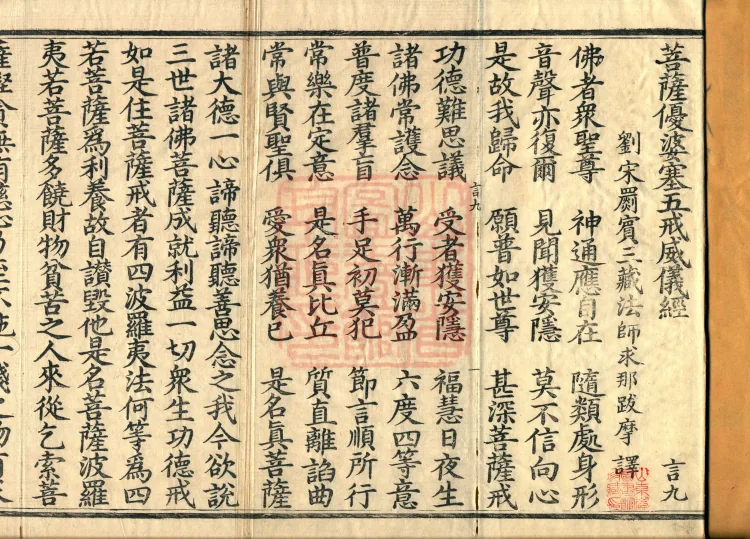 菩薩優婆塞五戒威儀經 言九
劉宋罽賓三藏法師求那跋摩 譯
佛者衆聖尊 神通應自在 隨類處身形
音聲亦復爾 見聞獲安隱 莫不信向心
是故我歸命 願普如世尊 甚深菩薩戒
言九
功德難思議 受者獲安隱 福慧日夜生
諸佛常護念 萬行漸滿盈 六度四等意
普度諸羣盲 手足初莫犯 節言順所行
常樂在定意 是名眞比丘 質直離諂曲
常與賢聖俱 愛衆猶養已 是名眞菩薩
諸大德一心諦聽諦聽善思念之我今欲說
三世諸佛菩薩成就利益一切衆生功德戒
如是住菩薩戒者有四波羅夷法何等爲四
若菩薩爲利養故自讃毀他是名菩薩波羅
夷若菩薩多饒財物貧苦之人來從乞索菩